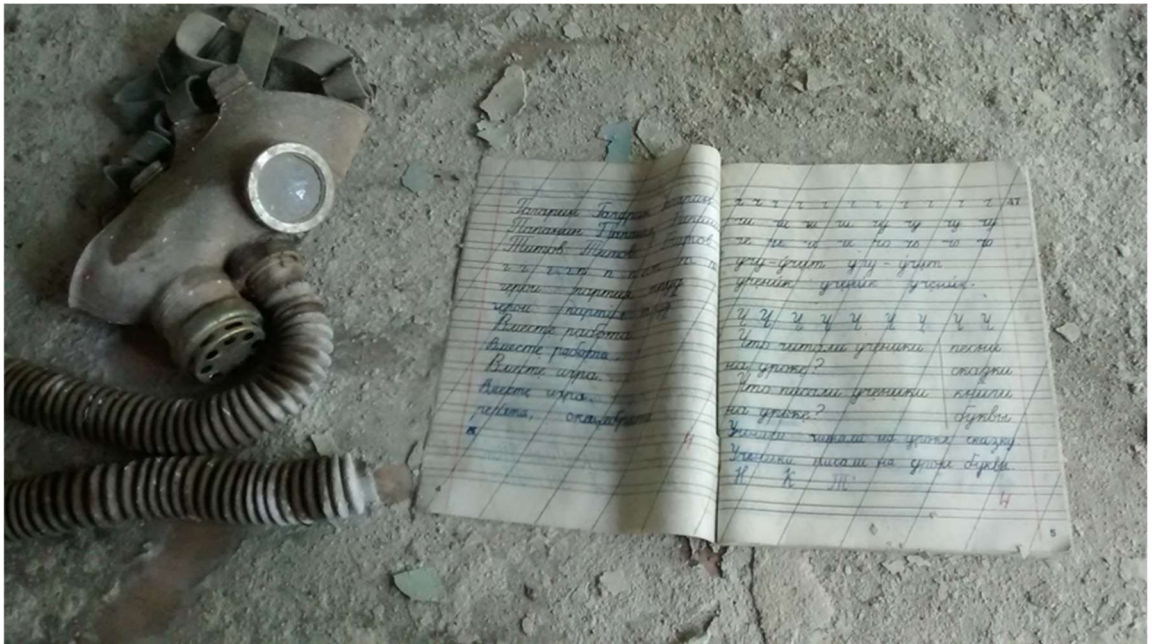 Гагарин Гагарин Гагарин
Папанин Папанин
Титов Титов Титов
г г г г п п п п т п
герои – партия труд
герои – партия труд
Вместе работа
Вместе работа
Вместе игра.
Вместе игра.
ребята, октябрята
4
4
ч ч ч ч ч ч ч ч ч ч ч 47
чи чи чи чи чу чу чу чу
че че че чи ча чо чо ча
учу – учит учу – учит
ученик ученик ученик.
Ч Ч Ч Ч Ч Ч Ч Ч Ч
Что читали ученики песни
на уроке? сказки
Что писали ученики книги
на уроке? буквы
Ученики читали на уроке сказку.
Ученики писали на уроке буквы.
Н К Т
4
5